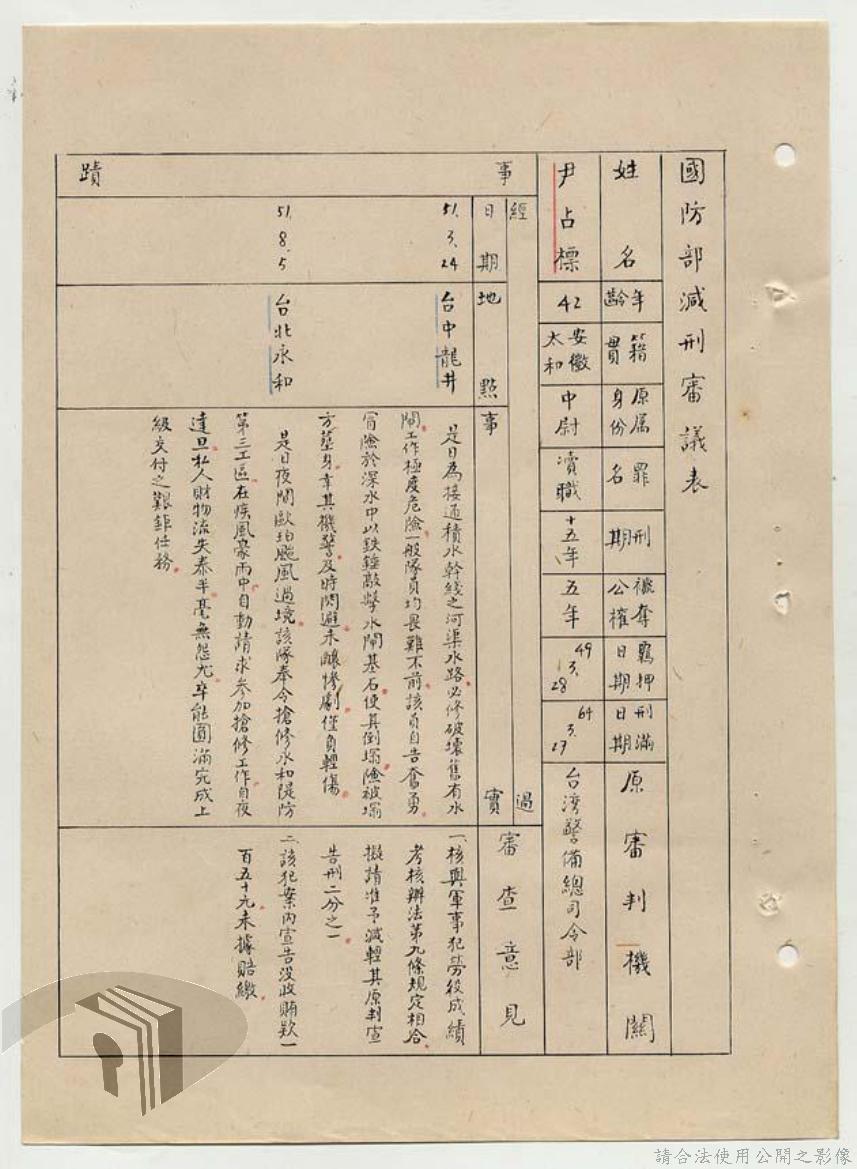 國防部減刑審議表
姓名
年齡
籍貫
原屬身份
罪名
刑期
褫奪公權
羈押日期
刑滿日期
原審判機關
尹占標
42
安徽太和
中尉
瀆職
十五年
五年
49.3.28
64.3.27
台湾警備總司令部
事蹟
經過
日期
地點
事實
審查意見
51.3.24
台中龍井
是日為接通積水幹綫之河渠水路必修破壞舊有水
閘工作極度危險一般隊員均畏難不前該員自告奮勇
冒險於深水中以鉄錘敲擊水閘基石使其倒塌險被塌
方葬身幸其機警及時閃避未釀慘劇僅負輕傷
51.8.5
台北永和
是日夜間歐珀颱風過境該隊奉令搶修永和隄防
第三工區在疾風豪雨中自動請求參加搶修工作自夜
達旦私人財物流失泰半毫無怨尤卒能圓滿完成上
級交付之艱鉅任務
一、核與軍事犯勞役成績
考核辦法第九條規定相合
擬請准予減輕其原判宣
告刑二分之一
二、該犯案內宣告沒收賄欵一
百五十元未據賠繳
請合法使用公開之影像